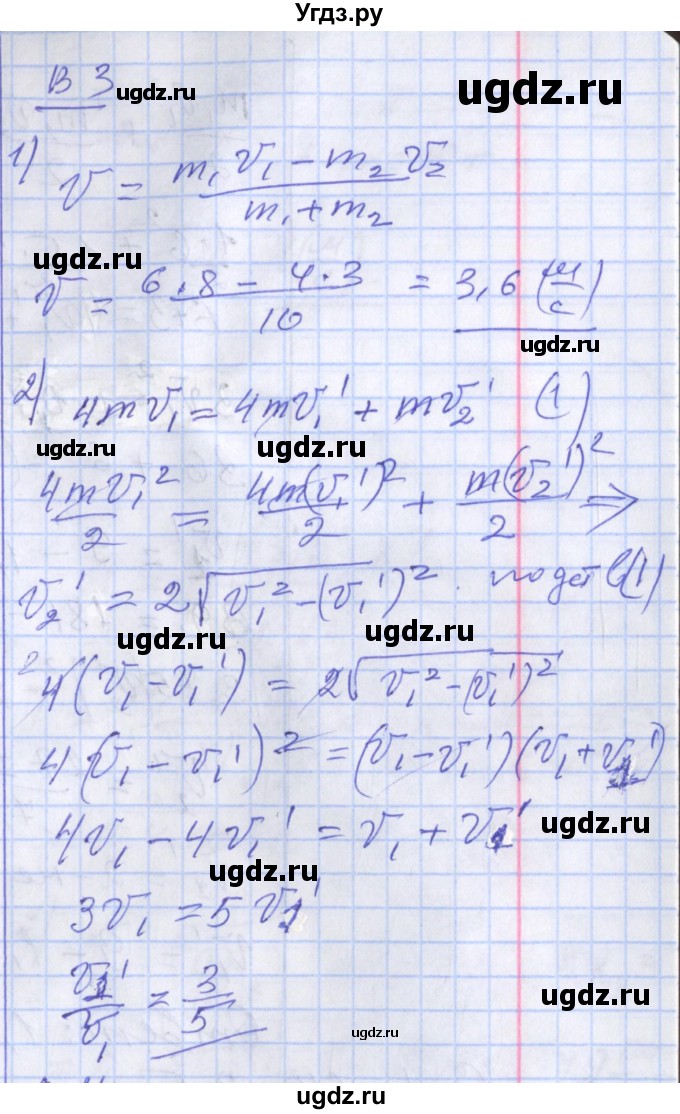 Угдз.ру
В 3
ugdz.ru
ugdz.ru
1) v = (m₁v₁ − m₂v₂)/(m₁+m₂)
ugdz.ru
v = (6·8 − 4·3)/10 = 3,6 (м/с)
ugdz.ru
2) 4mv₁ = 4mv₁' + mv₂' (1)
ugdz.ru
ugdz.ru
4mv₁²/2 = 4m(v₁')²/2 + m(v₂')²/2 ⇒
v₂' = 2√(v₁² − (v₁')²). подст в (1)
ugdz.ru
ugdz.ru
²4(v₁ − v₁') = 2√(v₁² − (v₁')²)
4(v₁ − v₁')² = (v₁ − v₁')(v₁ + v₁')
ugdz.ru
4v₁ − 4v₁' = v₁ + v₁'
ugdz.ru
3v₁ = 5v₁'
v₁'/v₁ = 3/5
ugdz.ru
ugdz.ru
ugdz.ru